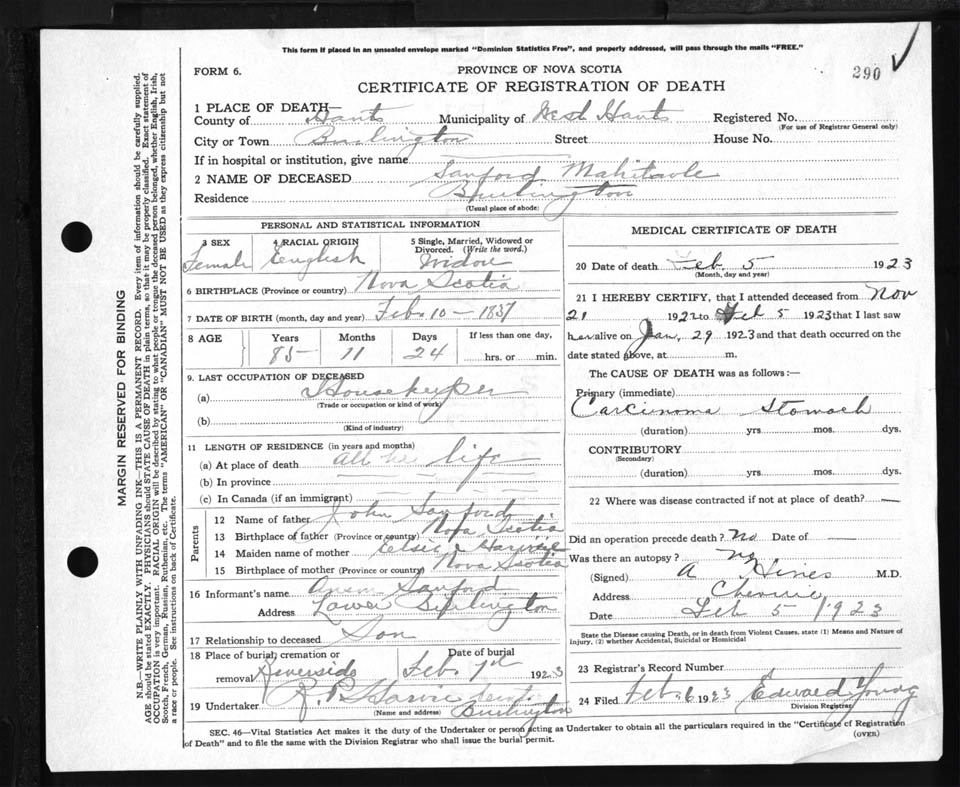 This form if placed in an unsealed envelope marked "Dominion Statistics Free", and properly addressed, will pass through the mails "FREE."
FORM 6.
PROVINCE OF NOVA SCOTIA
290
CERTIFICATE OF REGISTRATION OF DEATH
1 PLACE OF DEATH—
County of Hants Municipality of West Hants Registered No.
(For use of Registrar General only)
City or Town Burlington Street House No.
If in hospital or institution, give name
2 NAME OF DECEASED Sanford
Residence Burlington
(Usual place of abode)
PERSONAL AND STATISTICAL INFORMATION
3 SEX Female
4 RACIAL ORIGIN English
5 Single, Married, Widowed or Divorced. (Write the word.) Widow
6 BIRTHPLACE (Province or country) Nova Scotia
7 DATE OF BIRTH (month, day and year) Feb 10 - 1837
8 AGE Years 85 Months 11 Days 24 If less than one day, hrs. or min.
9. LAST OCCUPATION OF DECEASED
(a) Housekeeper
(Trade or occupation or kind of work)
(b)
(Kind of industry)
11 LENGTH OF RESIDENCE (in years and months)
(a) At place of death all her life
(b) In province
(c) In Canada (if an immigrant)
Parents
12 Name of father John Sanford
13 Birthplace of father (Province or country) Nova Scotia
14 Maiden name of mother Harvie
15 Birthplace of mother (Province or country) Nova Scotia
16 Informant's name Sanford
Address Lower Burlington
17 Relationship to deceased Son
18 Place of burial, cremation or removal Riverside Date of burial Feb 1923
19 Undertaker Harvie
(Name and address) Burlington
MEDICAL CERTIFICATE OF DEATH
20 Date of death Feb 5 1923
(Month, day and year)
21 I HEREBY CERTIFY, that I attended deceased from Nov
21 1922 to Feb 5 1923 that I last saw
her alive on Jan, 29 1923 and that death occurred on the
date stated above, at m.
The CAUSE OF DEATH was as follows:—
Primary (immediate)
Carcinoma Stomach
(duration) yrs. mos. dys.
CONTRIBUTORY
(Secondary)
(duration) yrs. mos. dys.
22 Where was disease contracted if not at place of death?
Did an operation precede death? No Date of
Was there an autopsy? no
(Signed) A Hines M.D.
Address
Date Feb 5 1923
State the Disease causing Death, or in death from Violent Causes, state (1) Means and Nature of
Injury, (2) whether Accidental, Suicidal or Homicidal
23 Registrar's Record Number
24 Filed Feb. 6 1923 Edward Young
Division Registrar
SEC. 46—Vital Statistics Act makes it the duty of the Undertaker or person acting as Undertaker to obtain all the particulars required in the "Certificate of Registration
of Death" and to file the same with the Division Registrar who shall issue the burial permit.
(OVER)
MARGIN RESERVED FOR BINDING
N.B.—WRITE PLAINLY WITH UNFADING INK—THIS IS A PERMANENT RECORD. Every item of information should be carefully supplied.
AGE should be stated EXACTLY. PHYSICIANS should STATE CAUSE OF DEATH in plain terms, so that it may be properly classified. Exact statement of
OCCUPATION is very important. RACIAL ORIGIN will be described by stating to what people or tongue the deceased person belonged, whether English, Irish,
Scotch, French, German, Russian, Ruthenian, etc. The terms "AMERICAN" or "CANADIAN" MUST NOT BE USED as they express citizenship but not
a race or people. See instructions on back of Certificate.